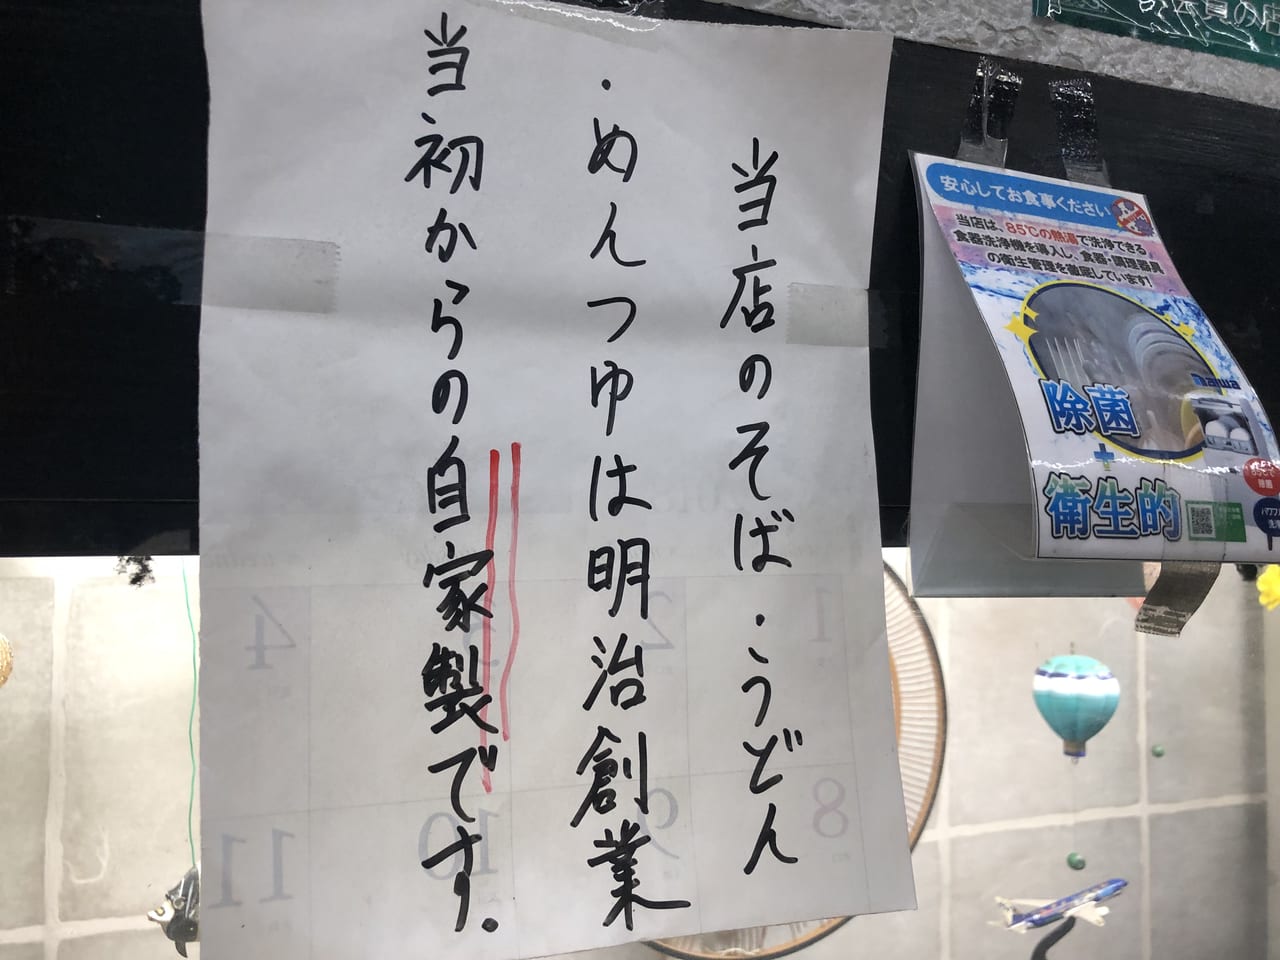 当店のそば・うどん
・めんつゆは明治創業
当初からの自家製です.
安心してお食事ください
当店は、85℃の熱湯で洗浄できる
食器洗浄機を導入し、食器・調理器具
の衛生管理を徹底しています!
Daiwa
除菌
+
衛生的
除菌
1
2
3
4
8
9
10
11